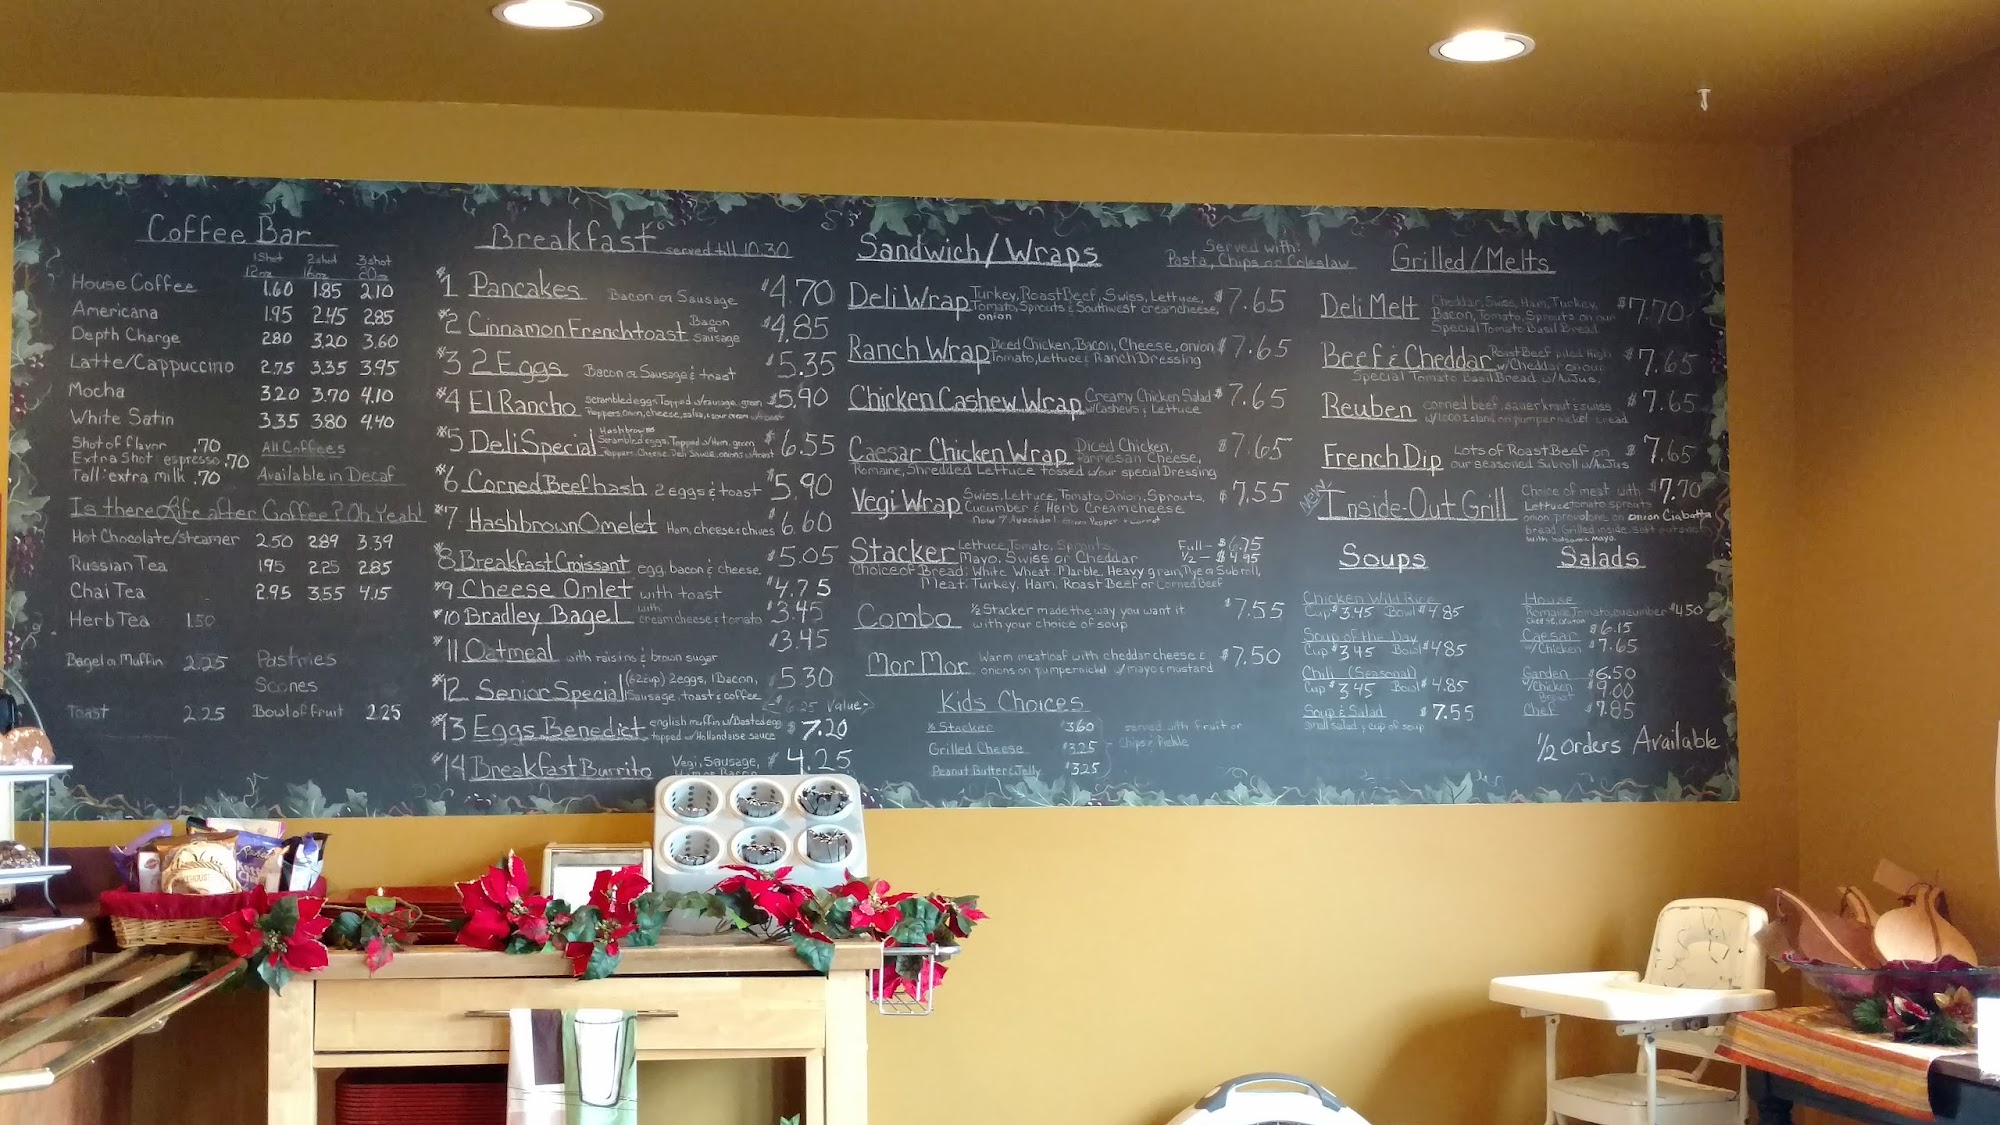 Coffee Bar
1 Shot 2 shot 3 shot
12oz 16oz 20oz
House Coffee 1.60 1.85 2.10
Americana 1.95 2.45 2.85
Depth Charge 2.80 3.20 3.60
Latte/Cappuccino 2.75 3.35 3.95
Mocha 3.20 3.70 4.10
White Satin 3.35 3.80 4.40
Shot of flavor .70
Extra Shot espresso .70
Tall: extra milk .70
All Coffees
Available in Decaf
Is there Life after Coffee? Oh Yeah!
Hot Chocolate/Steamer 2.50 2.89 3.39
Russian Tea 1.95 2.25 2.85
Chai Tea 2.95 3.55 4.15
Herb Tea 1.50
Bagel or Muffin 2.25 Pastries
Scones
Toast 2.25 Bowl of Fruit 2.25
Breakfast served till 10:30
#1 Pancakes Bacon or Sausage $4.70
#2 Cinnamon Frenchtoast Bacon or Sausage $4.85
#3 2 Eggs Bacon or Sausage & toast $5.35
#4 El Rancho scrambled eggs Topped w/sausage, green $5.90
Peppers, onion, cheese, salsa, sour cream w/toast
#5 Deli Special Hashbrowns $6.55
Scrambled eggs, Topped w/Ham, green
Peppers, Cheese, Deli Sauce, onions w/toast
#6 Corned Beef hash 2 eggs & toast $5.90
#7 Hashbrown Omelet Ham, cheese & chives $6.60
#8 Breakfast Croissant egg, bacon & cheese $5.05
#9 Cheese Omlet with toast $4.75
#10 Bradley Bagel with creamcheese & tomato $3.45
#11 Oatmeal with raisins & brown sugar $3.45
#12 Senior Special (62 & up) 2 eggs, 1 Bacon, $5.30
1 Sausage, toast & coffee
6.25 Value
#13 Eggs Benedict english muffin w/Basted egg $7.20
topped w/Hollandaise sauce
#14 Breakfast Burrito Vegi, Sausage, $4.25
Ham or Bacon
Sandwich/Wraps
Served with:
Pasta, Chips or Coleslaw
Deli Wrap Turkey, Roast Beef, Swiss, Lettuce, $7.65
Tomato, Sprouts & Southwest creamcheese,
onion
Ranch Wrap Diced Chicken, Bacon, Cheese, onion $7.65
Tomato, Lettuce & Ranch Dressing
Chicken Cashew Wrap Creamy Chicken Salad $7.65
w/Cashews & Lettuce
Caesar Chicken Wrap Diced Chicken, $7.65
Parmesan Cheese,
Romaine, Shredded Lettuce tossed w/our special Dressing
Vegi Wrap Swiss, Lettuce, Tomato, Onion, Sprouts, $7.55
Cucumber & Herb Creamcheese
Now 7 Avocado! Green Pepper & carrot
Stacker Lettuce, Tomato, Sprouts, Full - $6.75
Mayo, Swiss or Cheddar 1/2 - $4.95
Choice of Bread: White, Wheat, Marble, Heavy grain, Rye or Sub roll,
Meat: Turkey, Ham, Roast Beef or Corned Beef
Combo 1/2 Stacker made the way you want it $7.55
with your choice of soup
Mor Mor Warm meatloaf with cheddar cheese & $7.50
onions on pumpernickel w/ mayo & mustard
Kids Choices
1/2 Stacker $3.60
Grilled Cheese $3.25
Peanut Butter & Jelly $3.25
served with fruit or
Chips & Pickle
Grilled/Melts
Deli Melt Cheddar, Swiss, Ham, Turkey, $7.70
Bacon, Tomato, Sprouts on our
Special Tomato Basil Bread
Beef & Cheddar Roast Beef piled High $7.65
w/Cheddar on our
Special Tomato Basil Bread w/AuJus,
Reuben corned beef, sauerkraut & swiss $7.65
w/1000 Island on pumpernickel bread
French Dip Lots of Roast Beef on $7.65
our seasoned Sub roll w/AuJus
NEW Inside-Out Grill Choice of meat with $7.70
Lettuce tomato sprouts
onion provolone on onion Ciabatta
bread Grilled inside, soft outside
with balsamic mayo.
Soups
Chicken Wild Rice
Cup $3.45 Bowl $4.85
Soup of the Day
Cup $3.45 Bowl $4.85
Chili (Seasonal)
Cup $3.45 Bowl $4.85
Soup & Salad $7.55
small salad & cup of soup
Salads
House
Romaine, Tomato, cucumber $4.50
Caesar $6.15
w/Chicken $7.65
Garden $6.50
w/Chicken Breast $9.00
Chef $7.85
1/2 orders Available